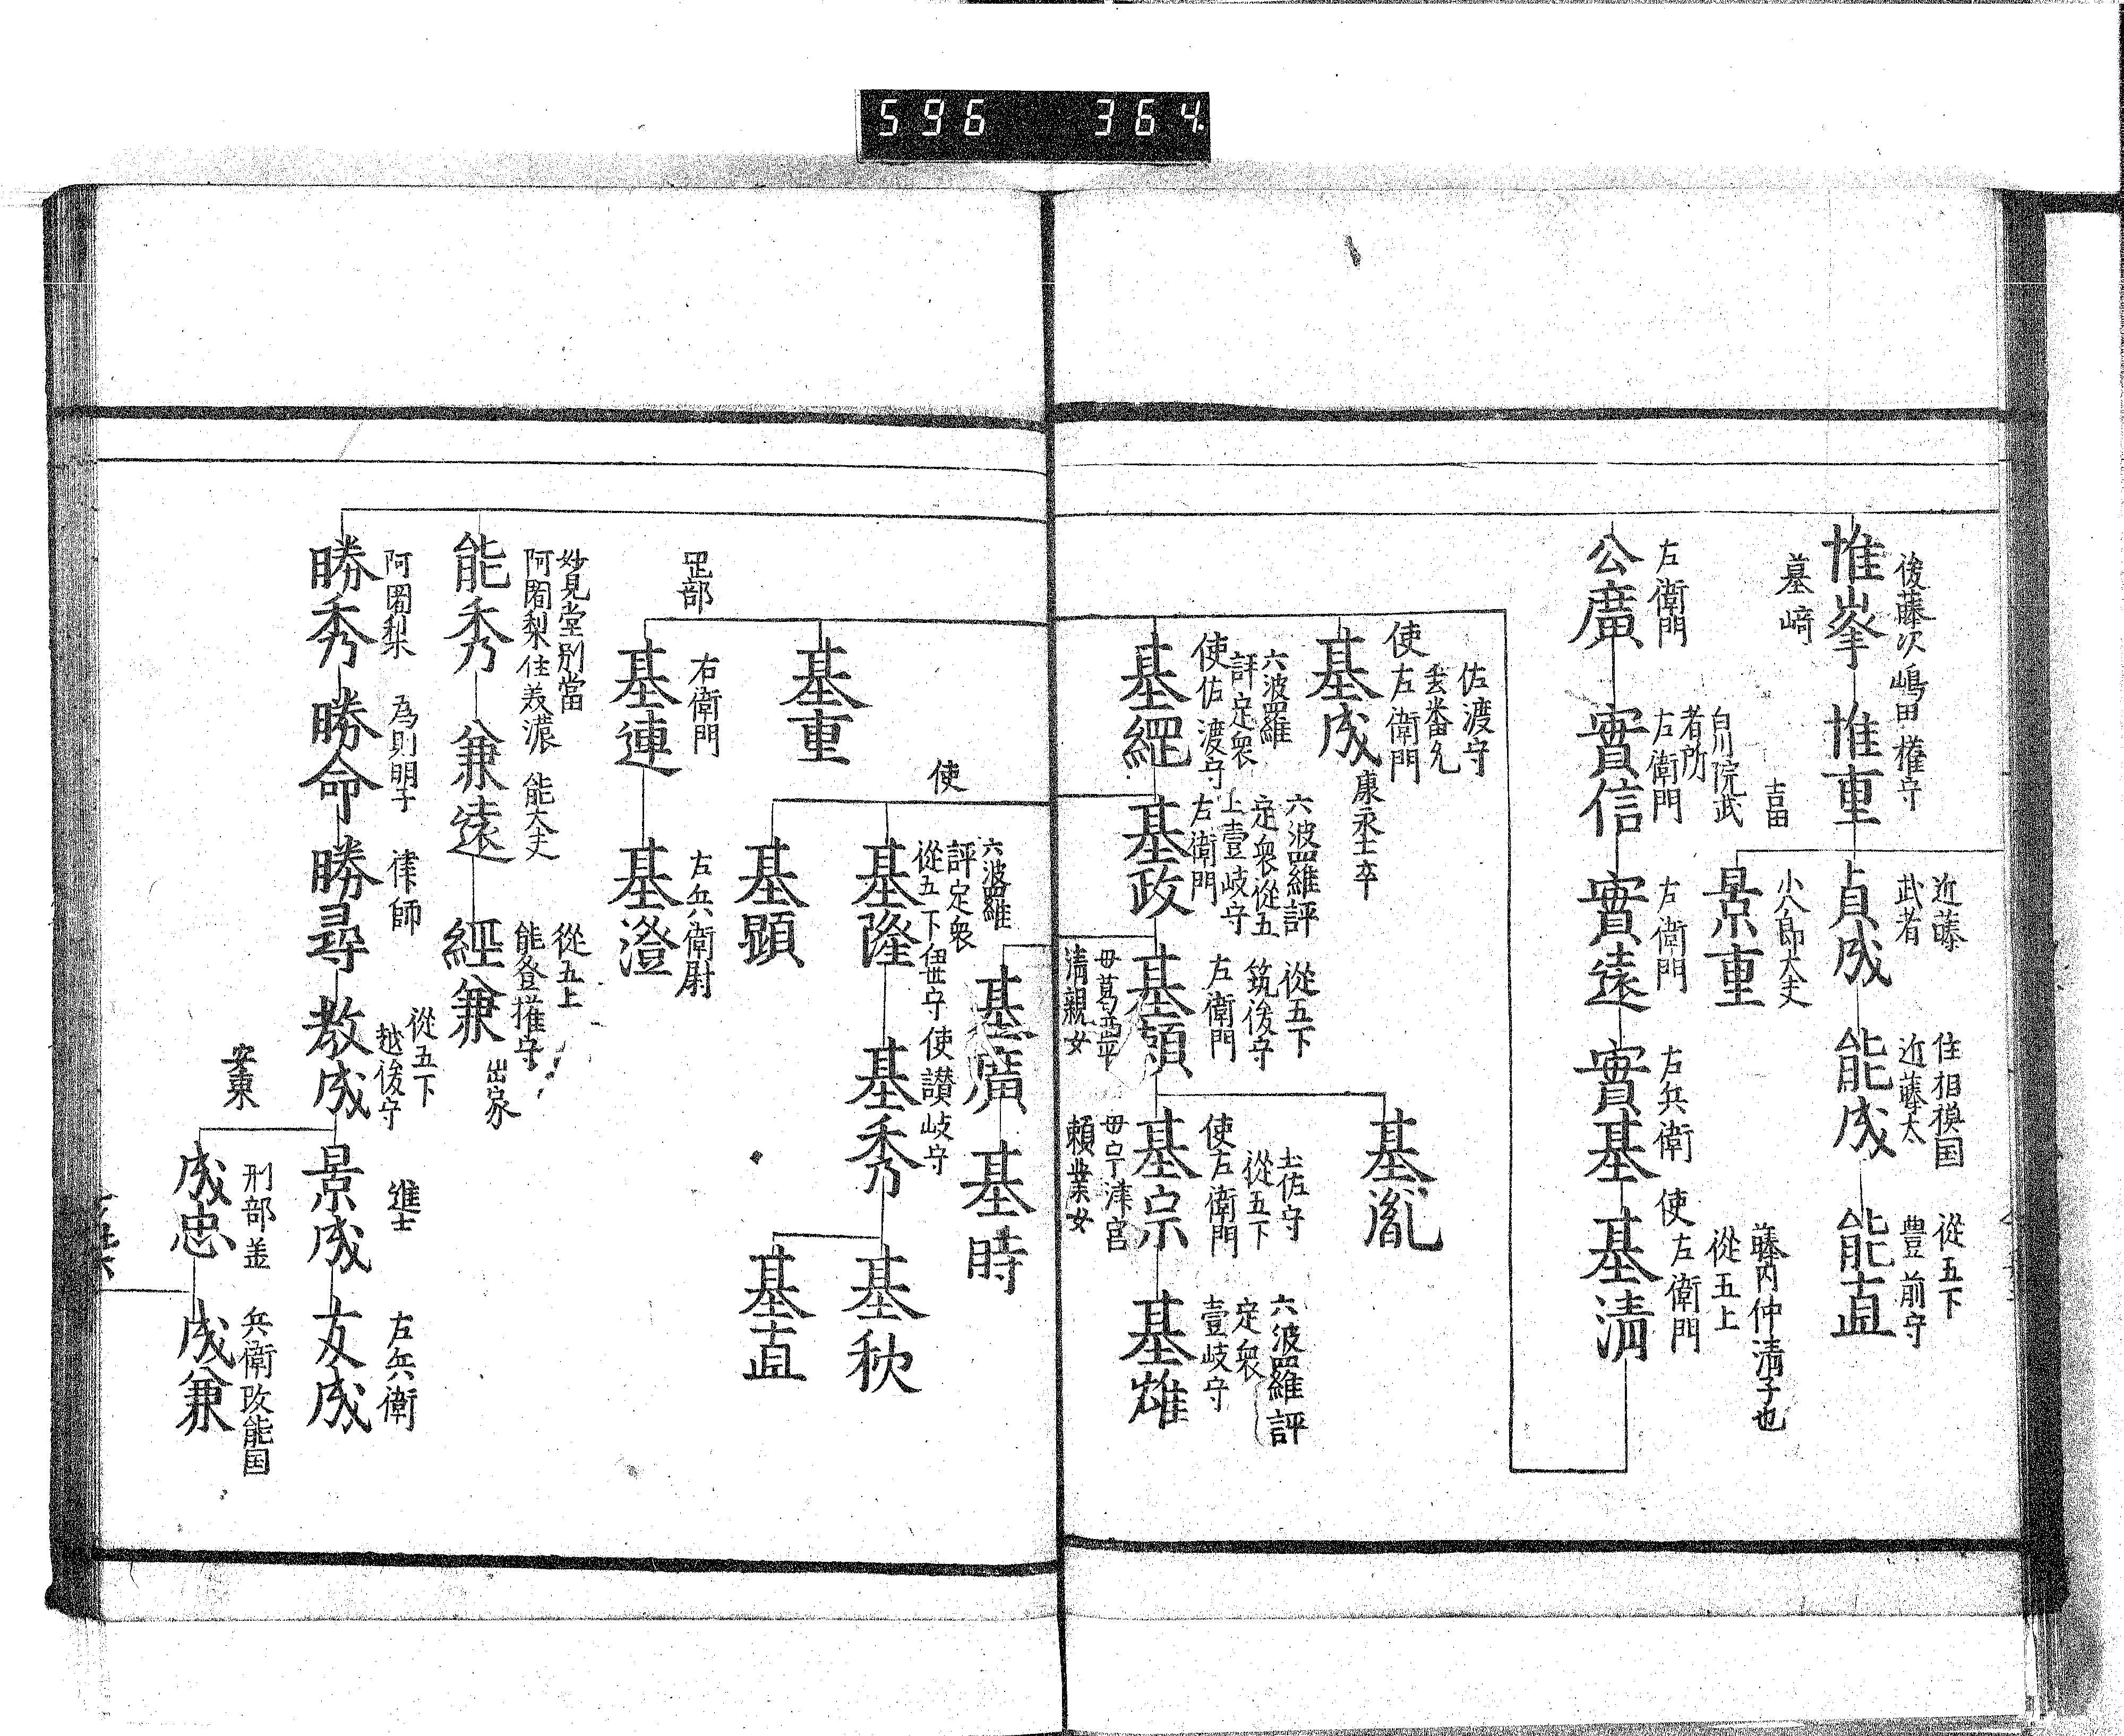 596 364.
後藤次嶋田権守
惟峯
墓﨑
惟重
吉田
近藤
武者
貞成
住相模国
近藤太
能成
從五下
豊前守
能直
小八郎大夫
景重
左衛門
公廣
白川院武
者所
左衛門
實信
左衛門
實遠
左兵衛
實基
藤内仲清子也
從五上
使左衛門
基清
佐渡守
玄蕃允
使左衛門
基成
康永士卒
基胤
六波羅
評定衆
使佐渡守
基綱
六波羅評
定衆從五
上壹岐守
左衛門
基政
從五下
筑後守
左衛門
基頼
母葛西平
清親女
土佐守
從五下
使左衛門
基宗
母宇津宮
頼業女
六波羅評
定衆
壹岐守
基雄
基廣
基時
使
六波羅
評定衆
從五下伊世守
基隆
使讃岐守
基秀
基秋
基直
基顕
基重
右衛門
基連
左兵衛尉
基澄
疋部
妙見堂別當
阿闍梨住美濃
能秀
能大夫
兼遠
從五上
能登権守
經兼
出家
阿闍梨
勝秀
為則明子
勝命
律師
勝尋
從五下
越後守
教成
進士
景成
左兵衛
友成
安東
刑部丞
成忠
兵衛改能国
成兼